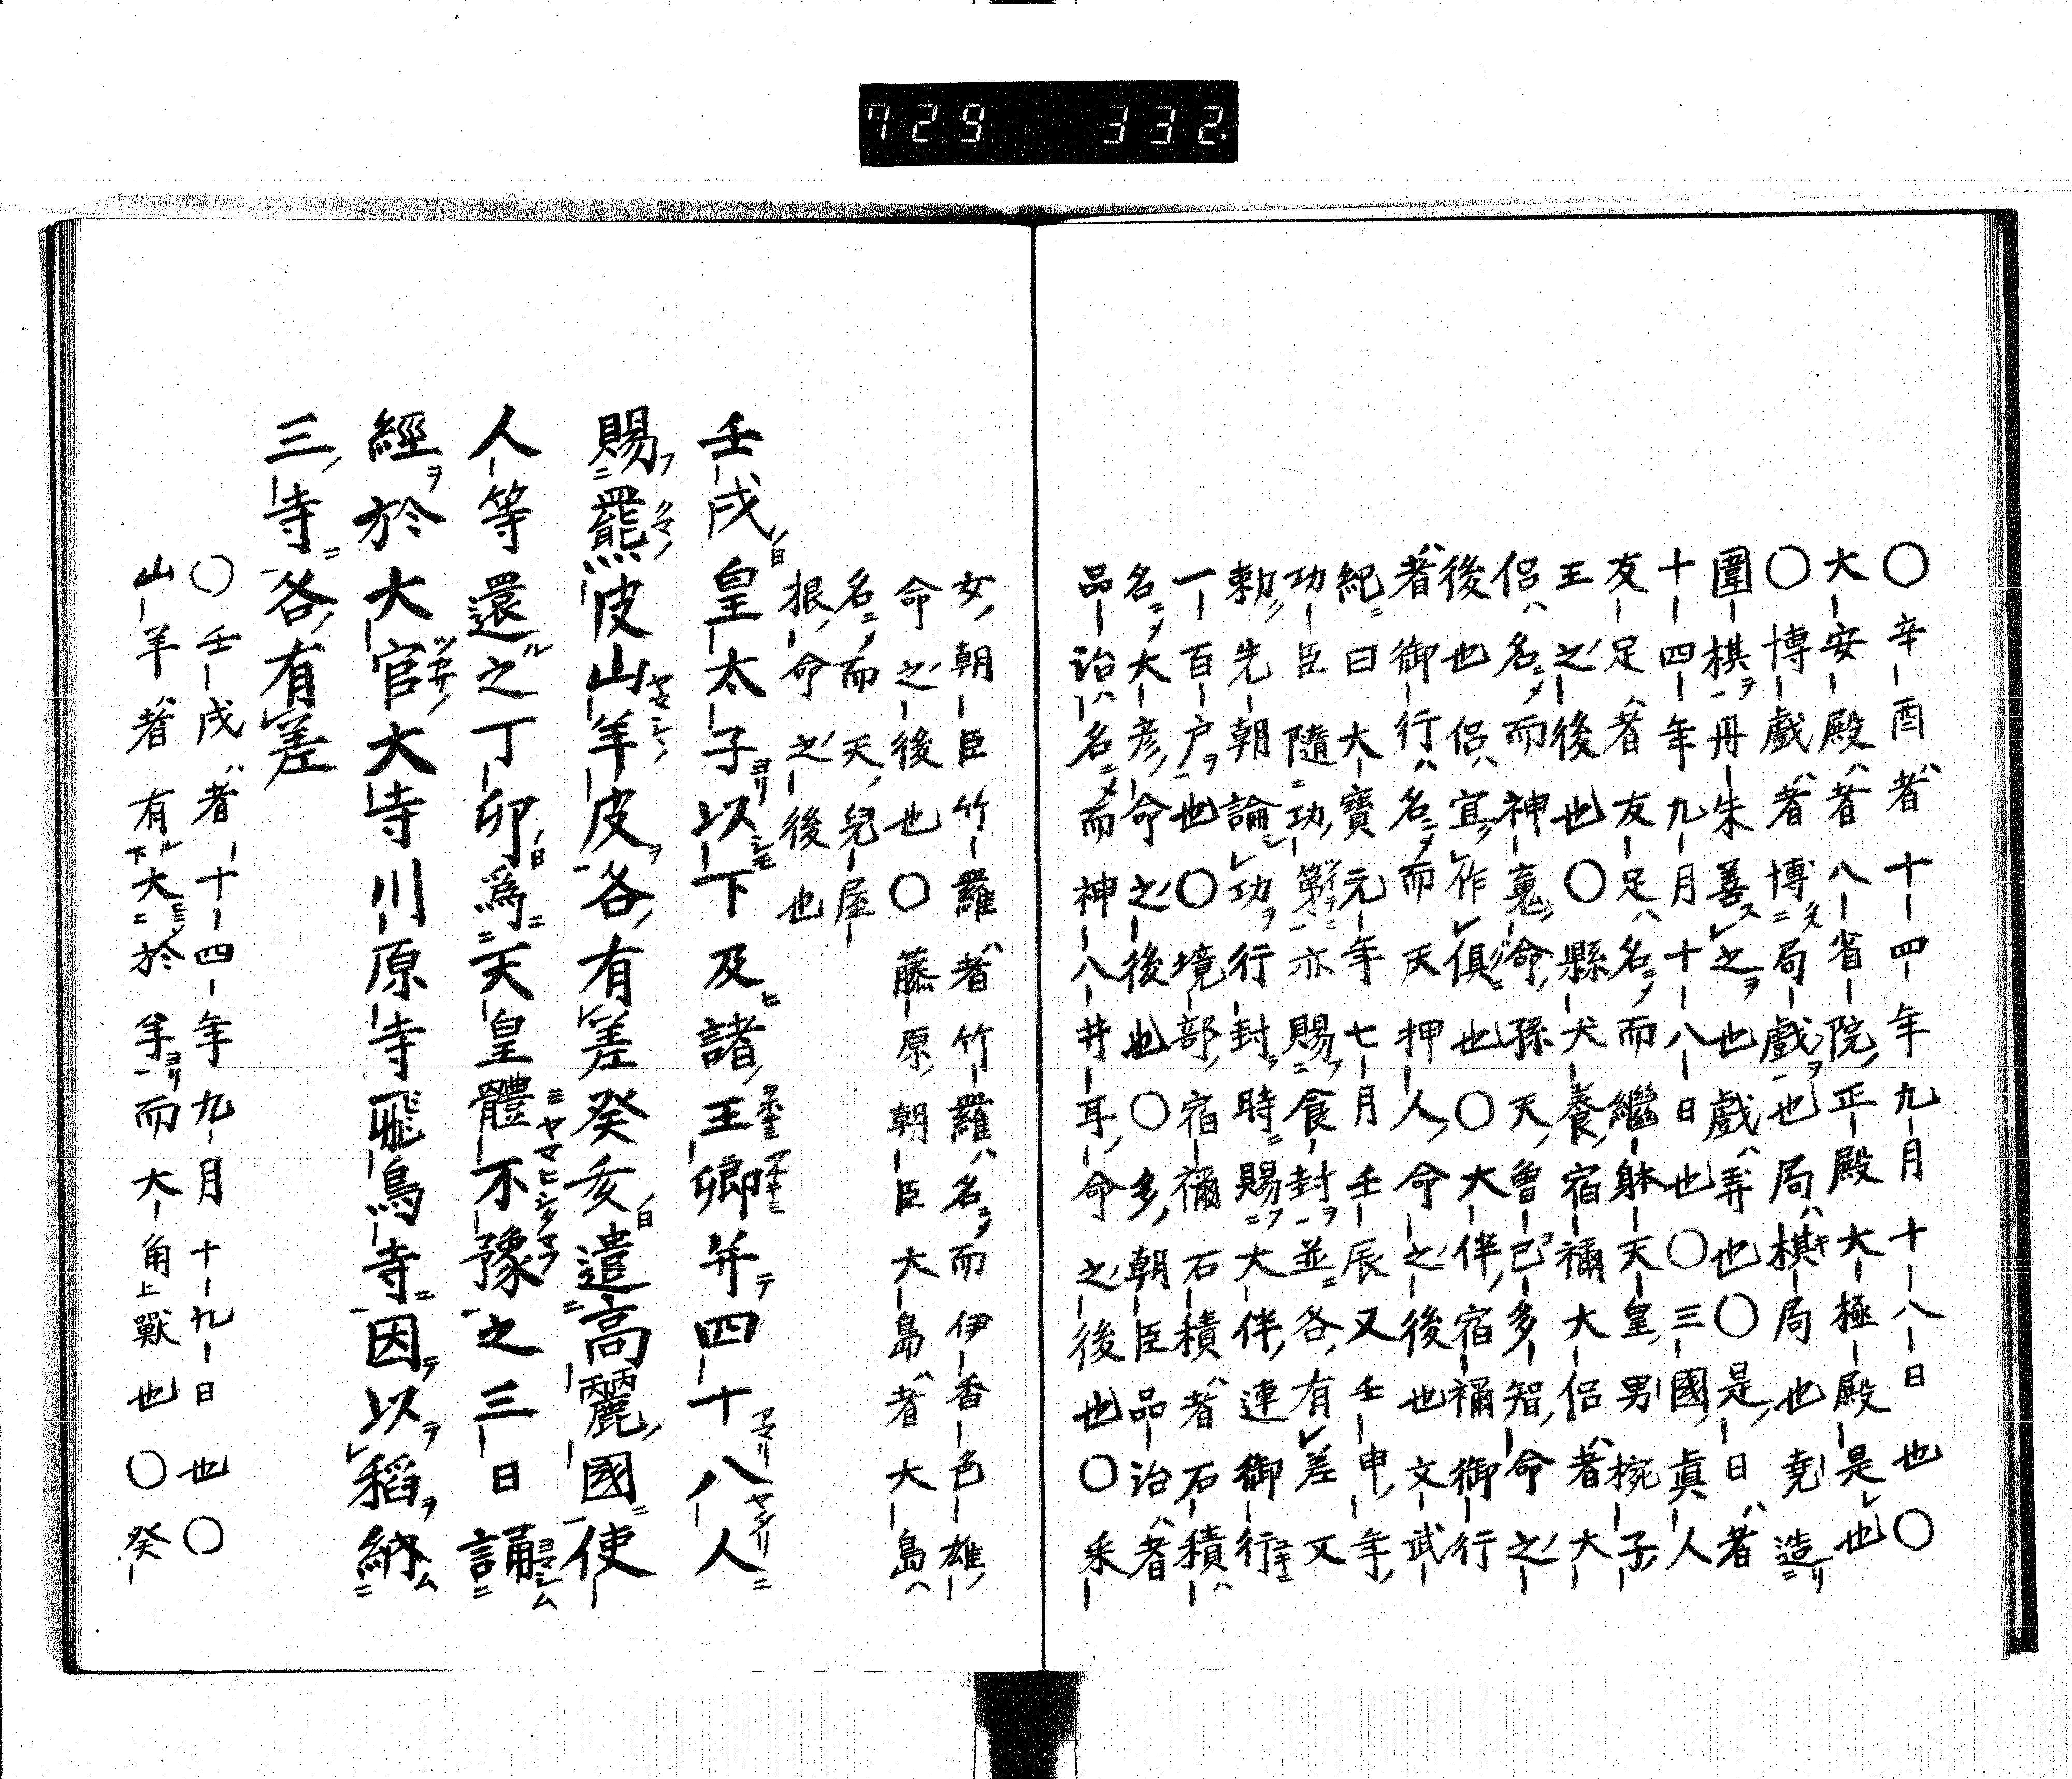 729 332
〇辛酉者十四年九月十八日也〇
大安殿者八省院正殿大極殿是也
〇博戲者博局戲也局棋局也堯造
圍棋丹朱善之也戲弄也〇是日者
十四年九月十八日也〇三國眞人
友足者友足名而繼躰天皇男椀子
王之後也〇縣犬養宿禰大侶者大
侶名而神䰟命孫天曾己多智命之
後也侶宜作俱也〇大伴宿禰御行
者御行名而天押人命之後也文武
紀曰大寶元年七月壬辰又壬申年
功臣隨功第亦賜食封並各有差又
勅先朝論功行封時賜大伴連御行
一百户也〇境部宿禰石積者石積
名大彥命之後也〇多朝臣品治者
品治名而神八井耳命之後也〇釆
女朝臣竹羅者竹羅名而伊香色雄
命之後也〇藤原朝臣大島者大島
名而天兒屋
根命之後也
壬戌皇太子以下及諸王卿并四十八人
賜羆皮山羊皮各有差癸亥遣高麗國使
人等還之丁卯爲天皇體不豫之三日誦
經於大官大寺川原寺飛鳥寺因以稻納
三寺各有差
〇壬戌者十四年九月十九日也〇
山羊者有大於羊而大角上戰也〇癸